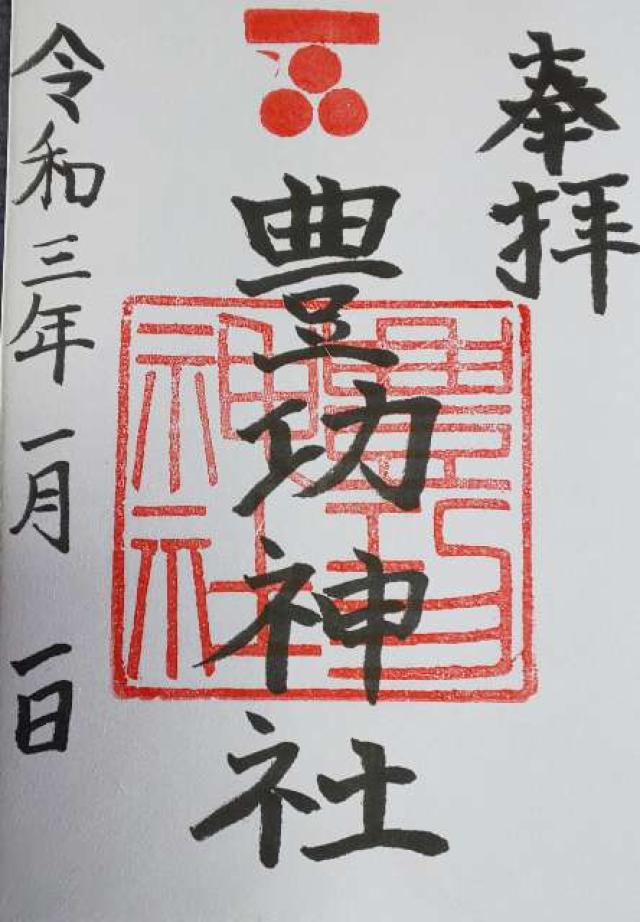 奉拝
豊功神社
豊功神社
令和三年一月一日